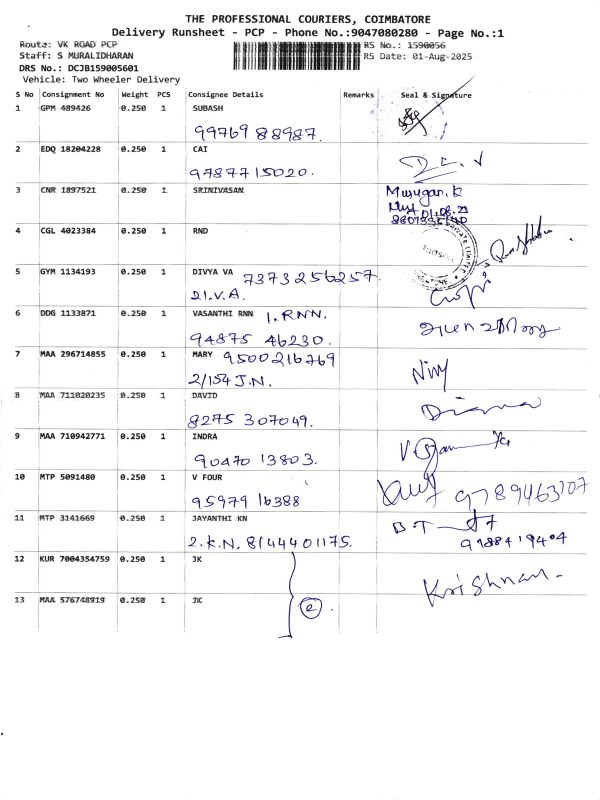 THE PROFESSIONAL COURIERS, COIMBATORE
Delivery Runsheet - PCP - Phone No.:9047080280 - Page No.:1
Route: VK ROAD PCP
Staff: S MURALIDHARAN
DRS No.: DCJB159005601
Vehicle: Two Wheeler Delivery
RS No.: 1590056
RS Date: 01-Aug-2025
S No Consignment No Weight PCS Consignee Details Remarks Seal & Signature
1 GPM 489426 0.250 1 SUBASH
99769 88987.
2 EDQ 18204228 0.250 1 CAI
9787715020.
3 CNR 1897521 0.250 1 SRINIVASAN.
Murugan.K
01.08.25
4 CGL 4023384 0.250 1 RND
5 GYM 1134193 0.250 1 DIVYA VA 7373256257.
21.V.A.
6 DDG 1133871 0.250 1 VASANTHI RNN 1.RNN.
94875 46230.
7 MAA 296714855 0.250 1 MARY 9500216769
2/154 J.N.
8 MAA 711020235 0.250 1 DAVID
8275 307049.
9 MAA 710942771 0.250 1 INDRA
90470 13803.
10 MTP 5091480 0.250 1 V FOUR
95979 16388 9789463107
11 MTP 3141669 0.250 1 JAYANTHI KN
2.K.N. 8144401175. 9788419404
12 KUR 7004354759 0.250 1 JK
Krishnan.
2
13 MAA 576748919 0.250 1 JK